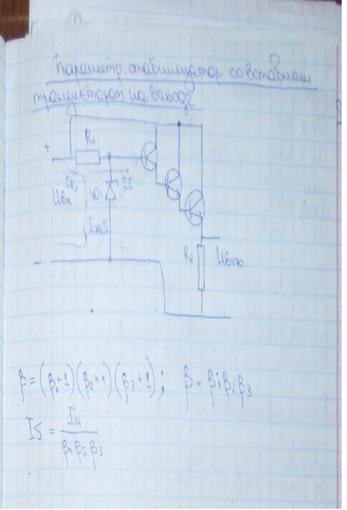 Параметр стабилизатор со вставном
транзистором на выходе
R₁
+
Uвх
VD₁
Iб
Iстаб
R₂ Uвых
β = (β₁+1)(β₂+1)(β₃+1); β = β₁β₂β₃
Iб = Iн / β₁β₂β₃